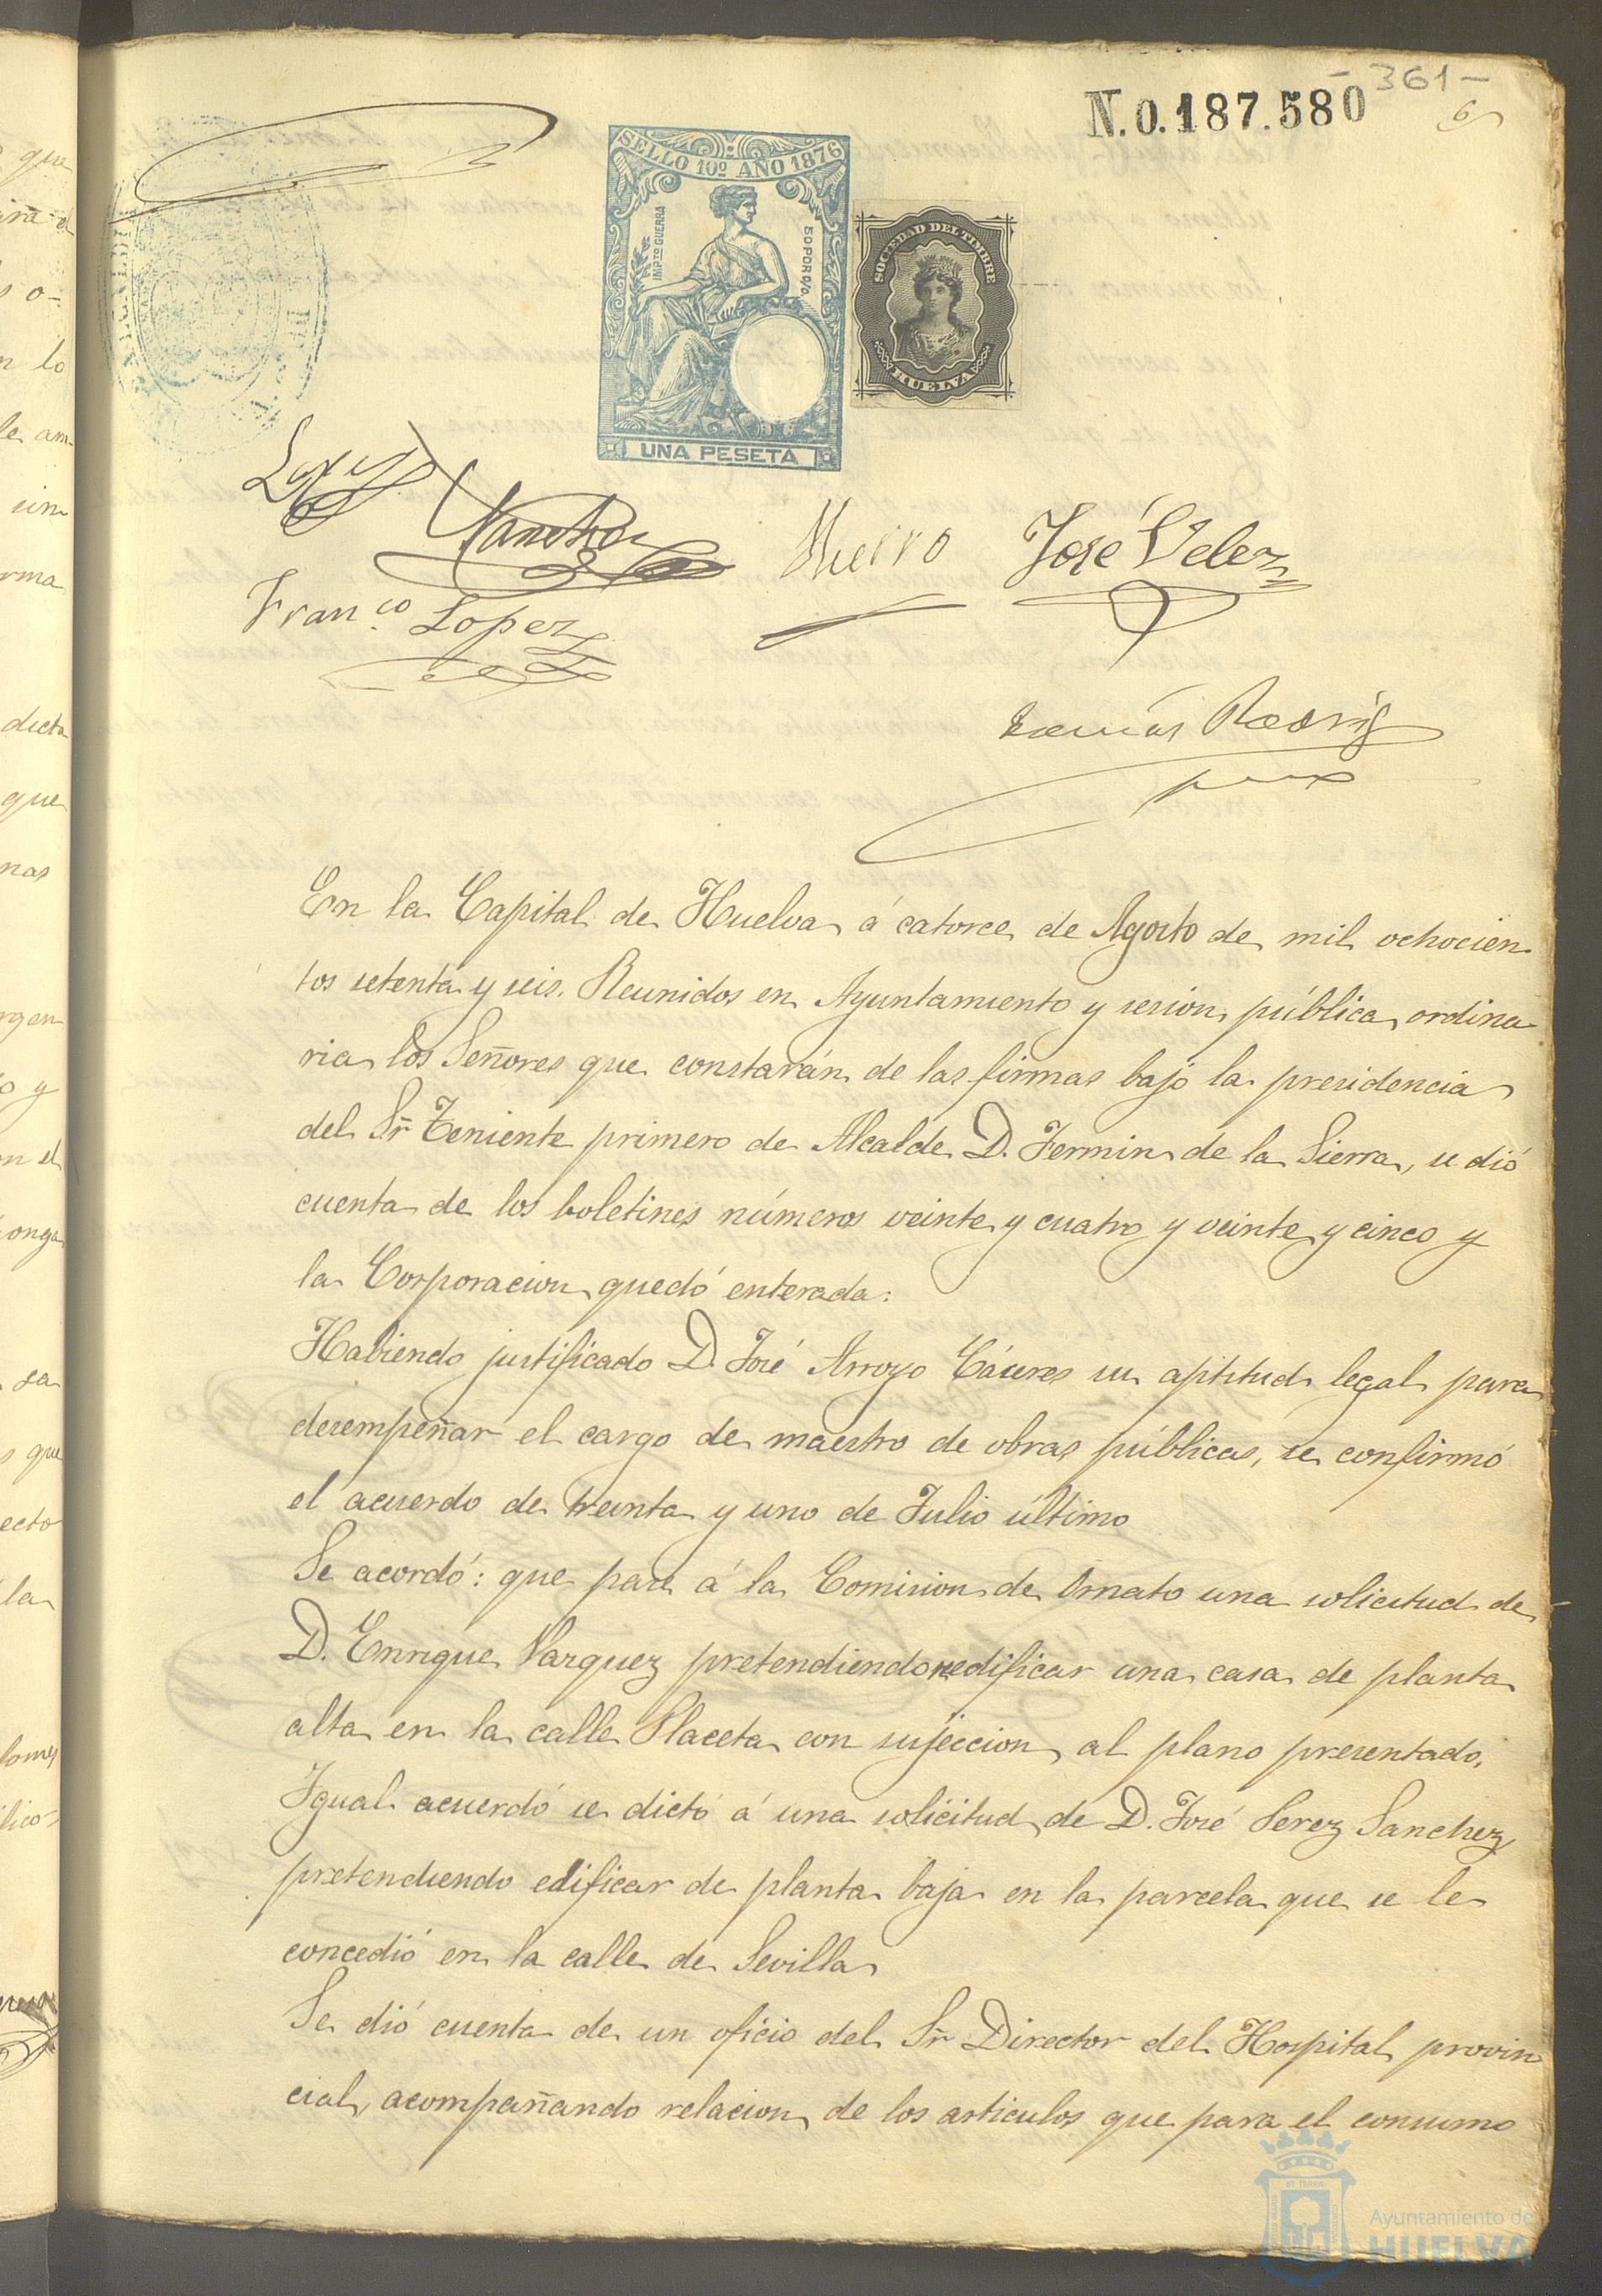 - 361 -
N.0.187.580
6
SELLO 10º AÑO 1876
IMPTO GUERRA
50 POR O/O
UNA PESETA
SOCIEDAD DEL TIMBRE
HUELVA
Sanchez
Hierro
José Velez
Franco Lopez
Tomás Rodrig
uez
En la Capital de Huelva á catorce de Agosto de mil ochocien
tos setenta y seis. Reunidos en Ayuntamiento y sesion pública ordina
ria los Señores que constarán de las firmas bajo la presidencia
del Sr Teniente primero de Alcalde D. Fermin de la Sierra, se dió
cuenta de los boletines números veinte y cuatro y veinte y cinco y
la Corporacion quedó enterada:
Habiendo justificado D. José Arroyo Cáceres su aptitud legal para
desempeñar el cargo de maestro de obras públicas, se confirmó
el acuerdo de treinta y uno de Julio último
Se acordó: que pase á la Comision de Ornato una solicitud de
D. Enrique Vazquez pretendiendo reedificar una casa de planta
alta en la calle Placeta con sujeccion al plano presentado.
Igual acuerdo se dictó á una solicitud de D. José Perez Sanchez
pretendiendo edificar de planta baja en la parcela que se le
concedió en la calle de Sevilla
Se dió cuenta de un oficio del Sr Director del Hospital provin
cial, acompañando relacion de los articulos que para el consumo
Ayuntamiento de
HUELVA